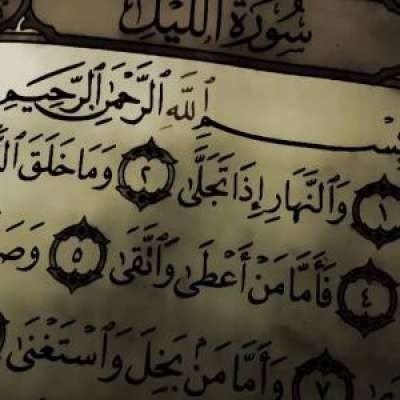 سُورَةُ اللَّيْلِ
بِسْمِ ٱللَّهِ ٱلرَّحْمَٰنِ ٱلرَّحِيمِ
١ وَٱلنَّهَارِ إِذَا تَجَلَّىٰ ٢ وَمَا خَلَقَ
٤ فَأَمَّا مَنْ أَعْطَىٰ وَٱتَّقَىٰ ٥
٧ وَأَمَّا مَنۢ بَخِلَ وَٱسْتَغْنَىٰ